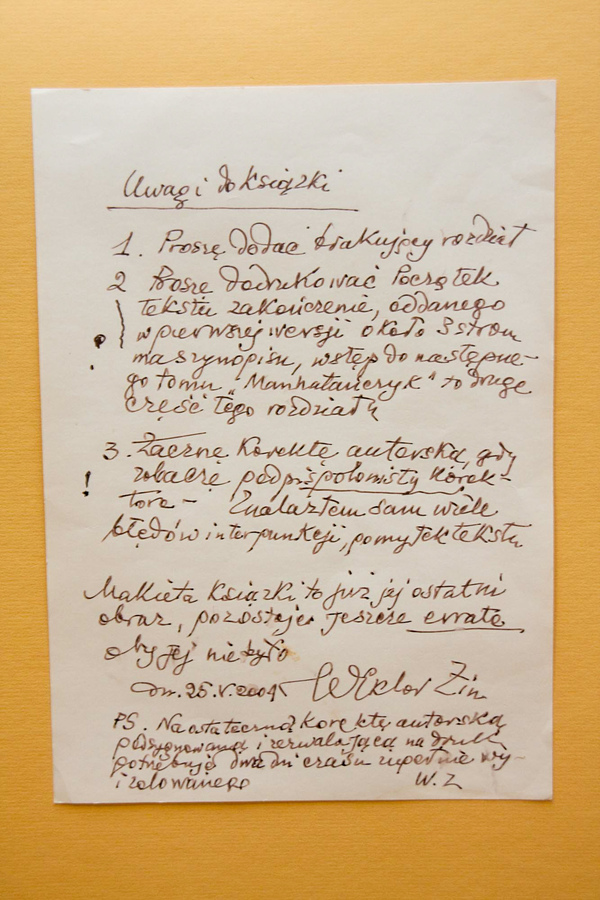 Uwagi do książki
1. Proszę dodać brakujący rozdział
2 Proszę dodrukować Początek
tekstu zakończenie, oddanego
w pierwszej wersji około 3 stron
maszynopisu, wstęp do następne-
go tomu "Manhatańczyk" to druga
część tego rozdziału
3. Zacznę Korektę autorską, gdy
zobaczę podpis polonisty Korek-
tora – Znalazłem sam wiele
błędów interpunkcji, pomyłek tekstu
!
Makieta książki to już jej ostatni
obraz, pozostaje jeszcze errata
oby jej nie było
dn. 25.V.2004 Wiktor Zin
PS. Na ostateczną korektę autorską
podsygnowaną i zezwalającą na druk
potrzebuję dwa dni czasu zupełnie wy-
izolowanego W. Z